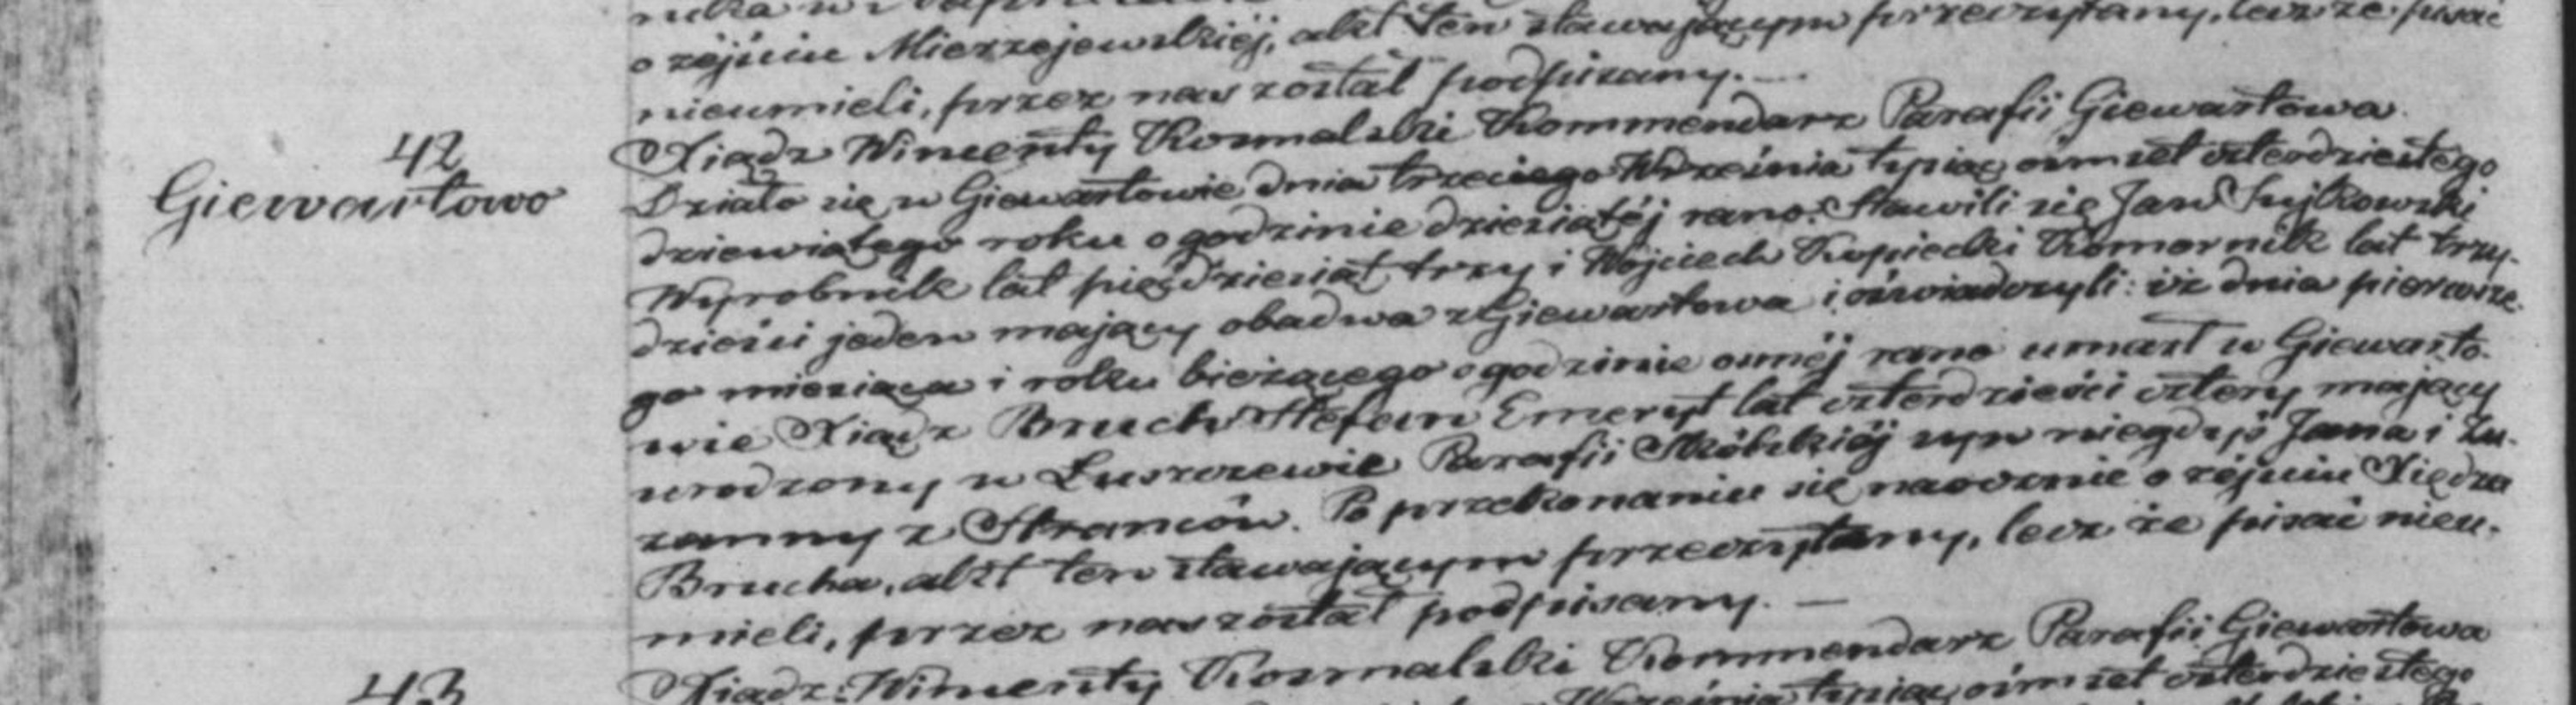 o zéjściu Mierzejewskiéj, akt ten stawającym przeczytany, lecz że pisać
nieumieli, przez nas został podpisany. —
42
Giewartowo
Xiądz Wincenty Kosmalski Kommendarz Parafii Giewartowa
Działo się w Giewartowie dnia trzeciego Września tysiąc ośmset czterdziestego
dziewiątego roku o godzinie dziesiątéj rano. Stawili się Jan Sujkowski
Wyrobnik lat pięćdziesiąt trzy i Wojciech Kopiecki Komornik lat trzy-
dzieści jeden mający obadwa z Giewartowa i oświadczyli: iż dnia pierwsze-
go miesiąca i roku bieżącego o godzinie osméj rano umarł w Giewarto-
wie Xiądz Bruch Stefan Emeryt lat czterdzieści cztery mający
urodzony w Łuszczewie Parafii Skólskiéj syn niegdyś Jana i Zu-
zanny z Stranców. Po przekonaniu się naocznie o zéjściu Xiędza
Brucha, akt ten stawającym przeczytany, lecz że pisać nieu-
mieli, przez nas został podpisany. —
43
Xiądz Wincenty Kosmalski Kommendarz Parafii Giewartowa
Września tysiąc ośmset czterdziestego